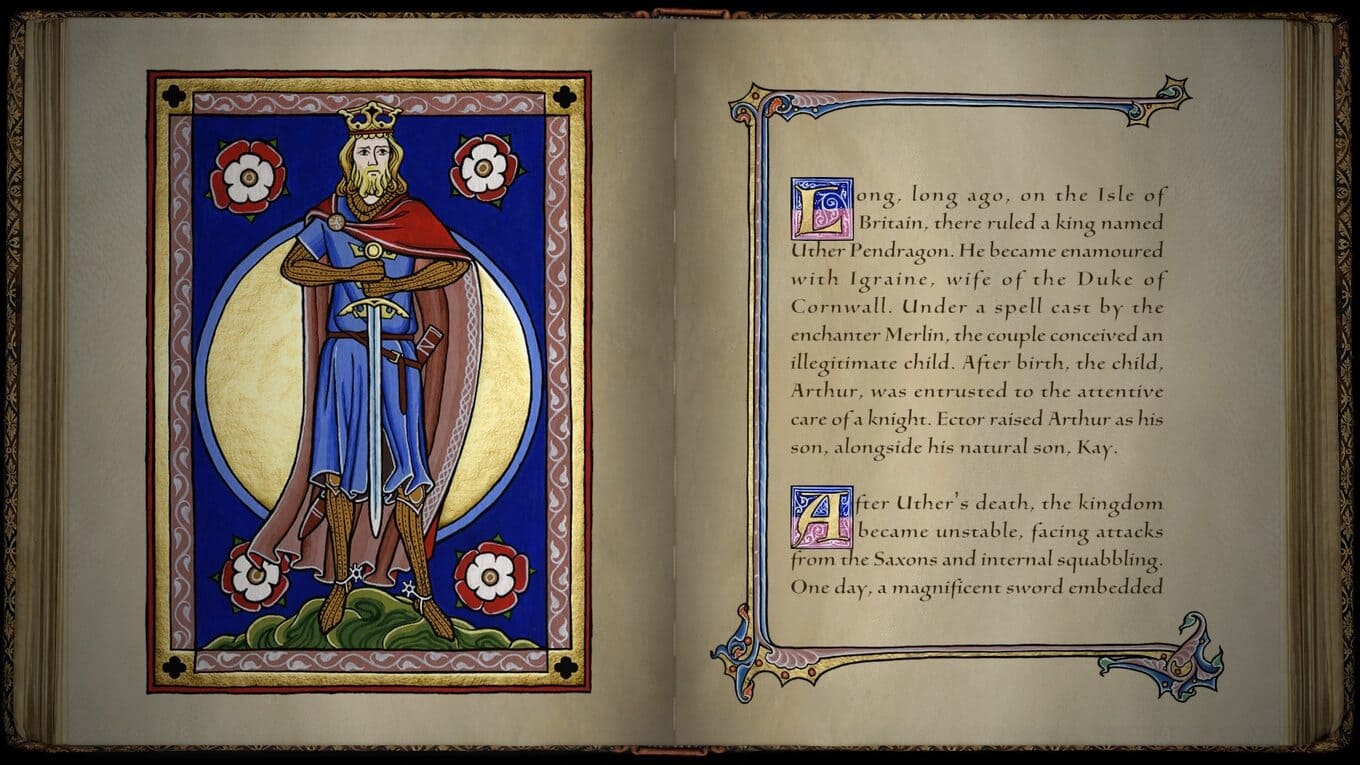 Long, long ago, on the Isle of
Britain, there ruled a king named
Uther Pendragon. He became enamoured
with Igraine, wife of the Duke of
Cornwall. Under a spell cast by the
enchanter Merlin, the couple conceived an
illegitimate child. After birth, the child,
Arthur, was entrusted to the attentive
care of a knight. Ector raised Arthur as his
son, alongside his natural son, Kay.
After Uther's death, the kingdom
became unstable, facing attacks
from the Saxons and internal squabbling.
One day, a magnificent sword embedded